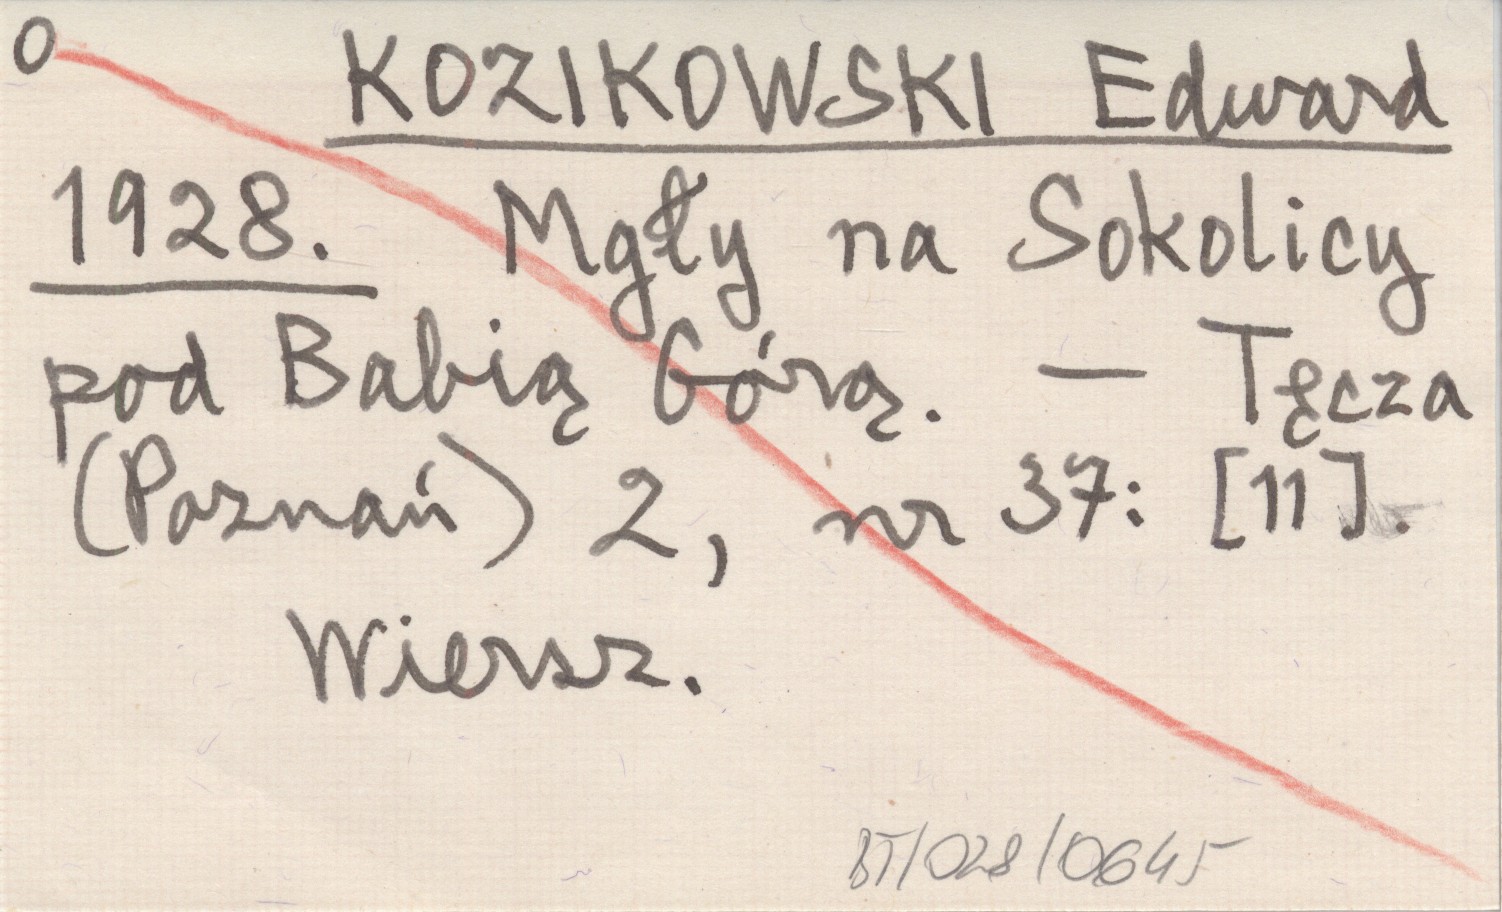 O KOZIKOWSKI Edward
1928. Mgły na Sokolicy
pod Babią Górą. — Tęcza
(Poznań) 2, nr 37: [11].
Wiersz.
BT/028/0645